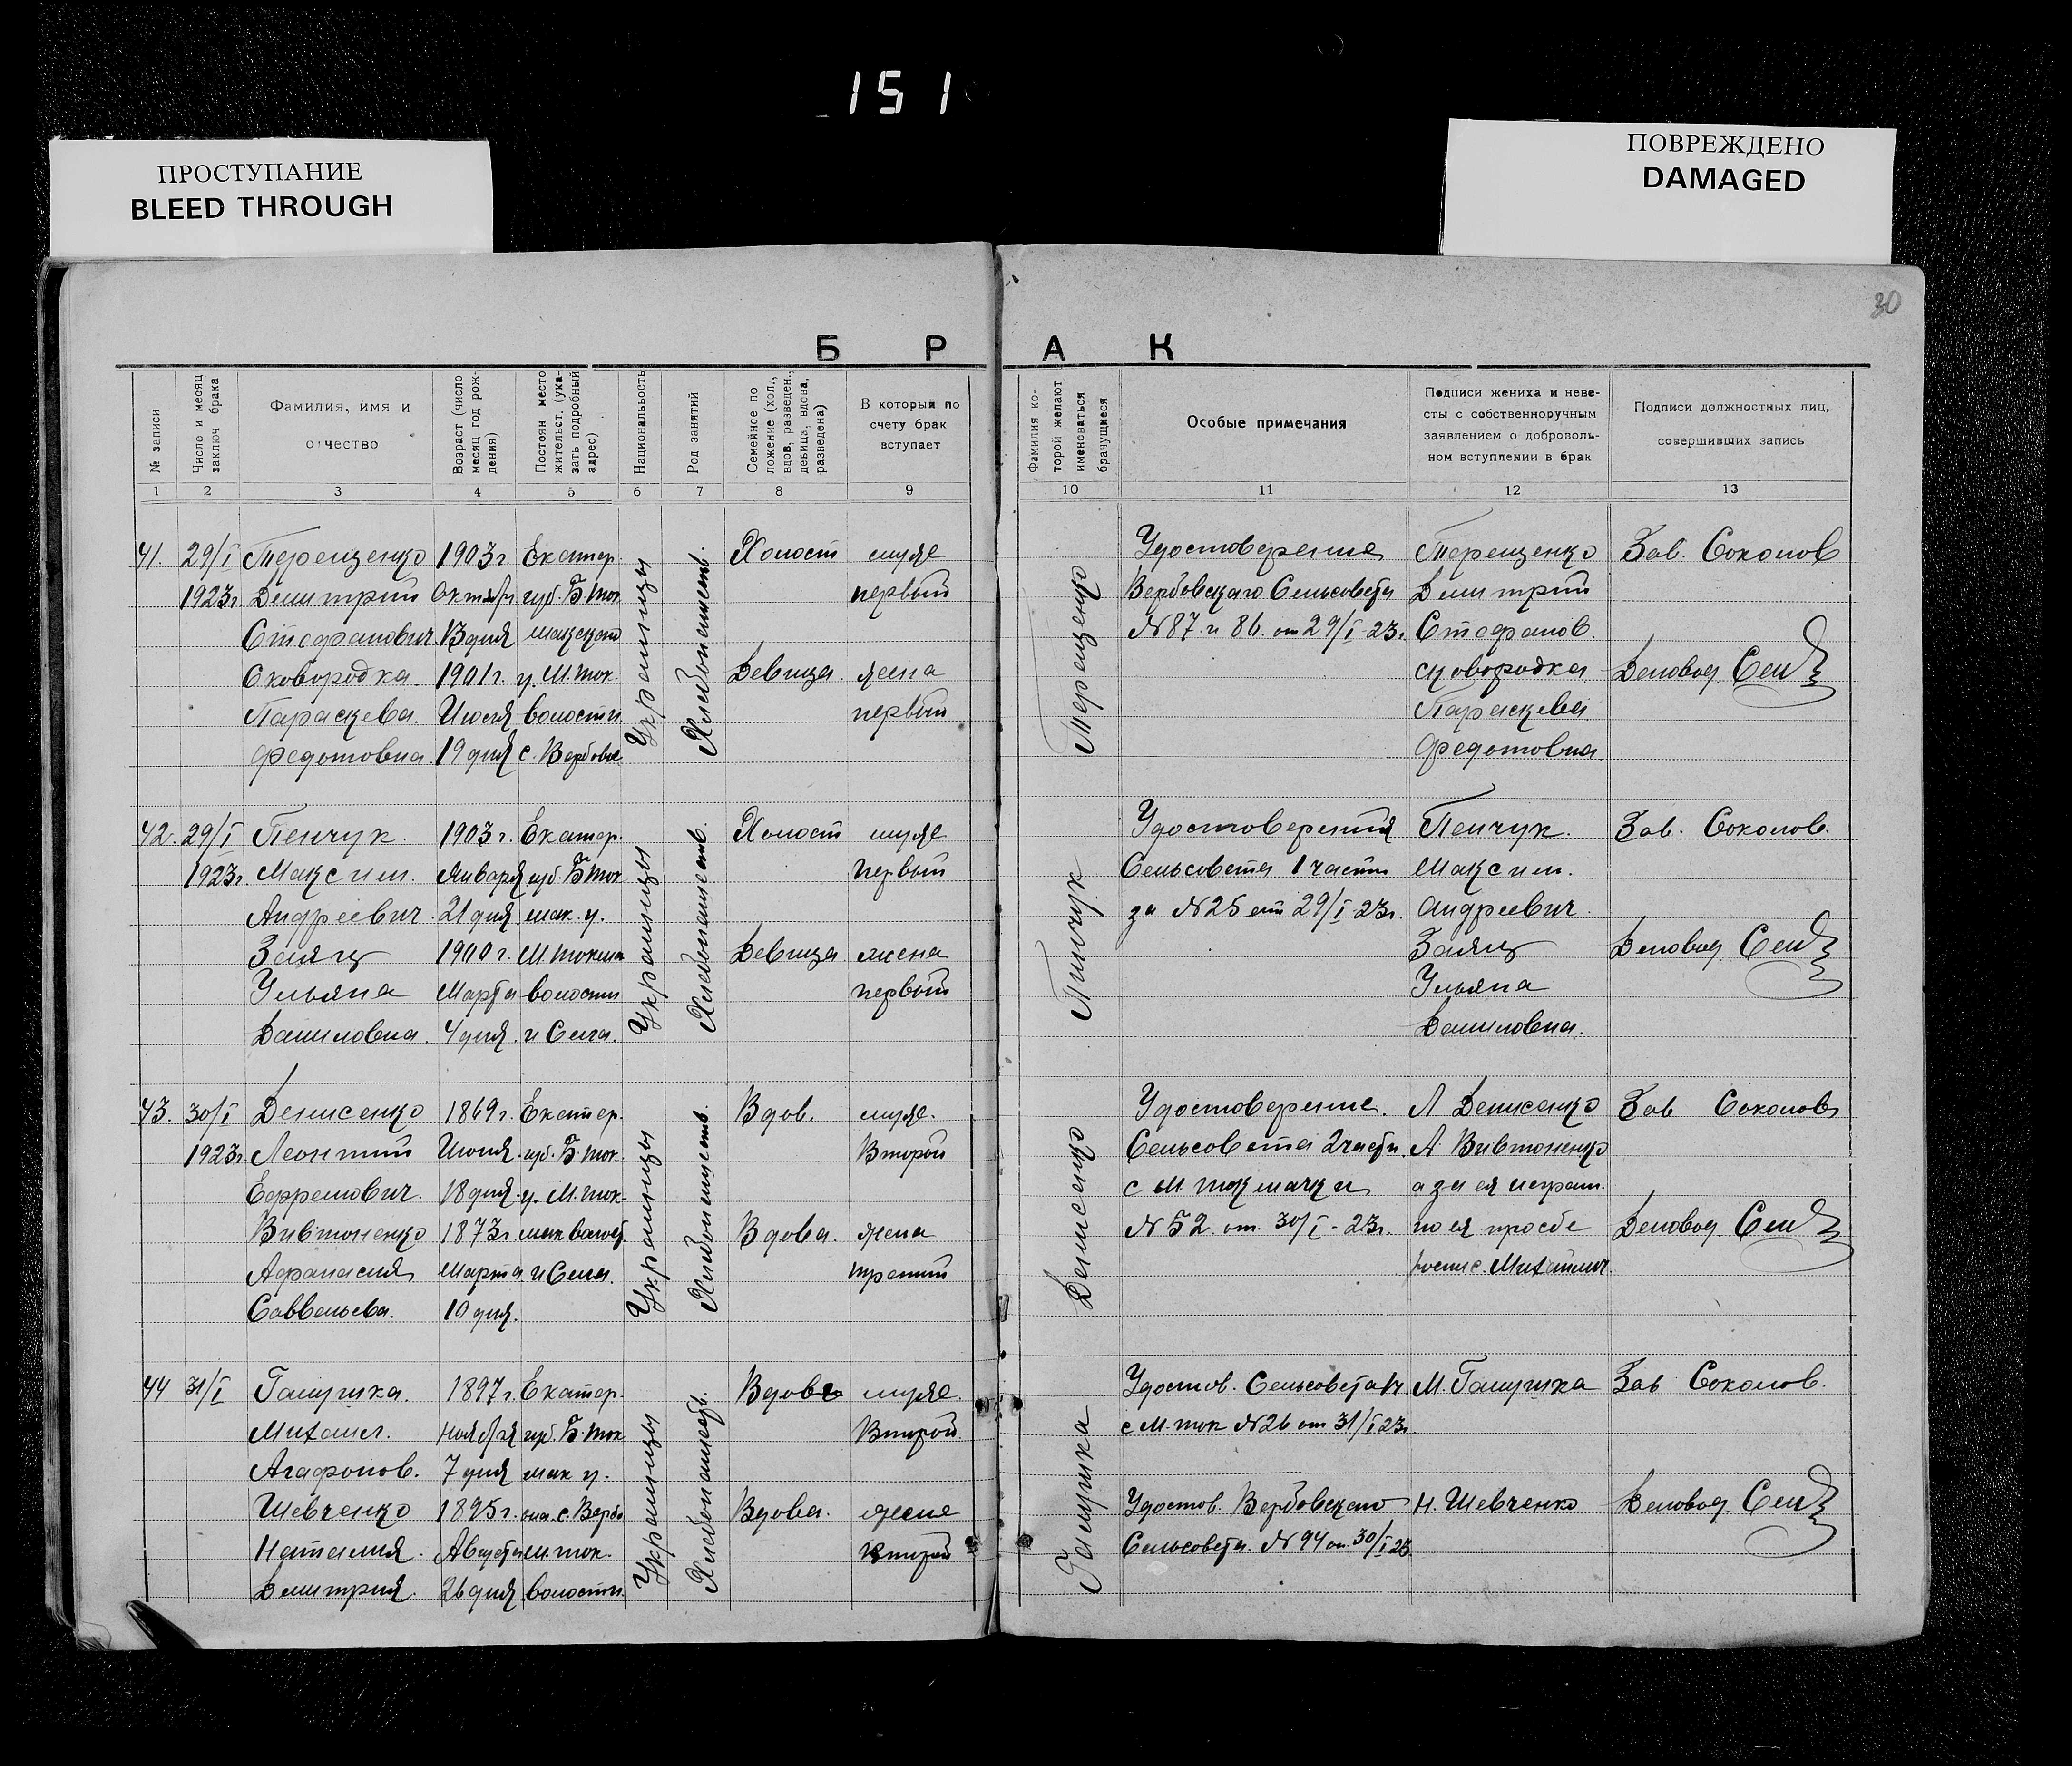 151
ПРОСТУПАНИЕ
BLEED THROUGH
ПОВРЕЖДЕНО
DAMAGED
30
Б Р А К
№ записи
Число и месяц заключ брака
Фамилия, имя и отчество
Возраст (число месяц год рождения)
Постоян место жительст. (указать подробный адрес)
Национальность
Род занятий
Семейное положение (хол., вдов, разведен., девица, вдова, разведена)
В который по счету брак вступает
Фамилия которой желают именоваться брачущиеся
Особые примечания
Подписи жениха и невесты с собственноручным заявлением о добровольном вступлении в брак
Подписи должностных лиц, совершивших запись
1 2 3 4 5 6 7 8 9 10 11 12 13
41. 29/I Терещенко 1903 г. Екатер. Холост муж Удостоверение Терещенко Зав. Соколов
1923 г. Димитрий Октября губ. Б Ток первый Вербовскаго Сельсовета Димитрий
Стефанович 13 дня макского №87 и 86. от 29/I-23 г. Стефанов.
Сковородка 1901 г. у. М. Ток. Девица. жена сковородка Деловод.
Параскева. Июля волости первый Параскева
Федотовна. 19 дня с. Вербовое Федотовна.
Украинцы
Хлебопашеств.
Терещенко
42. 29/I Пенчук. 1903 г. Екатер. Холост муж Удостоверения Пенчук. Зав. Соколов.
1923 г. Максим. Января губ. Б Ток первый Сельсовета 1 части Максим.
Андреевич. 21 дня мак. у. за №25 от 29/I-23 г. Андреевич.
Заяц 1900 г. М. Токма Девица жена Заяц Деловод.
Ульяна Марта волости первый Ульяна
Даниловна. 4 дня. и Села. Даниловна.
Украинцы
Хлебопашеств.
Пенчук
43. 30/I Денисенко 1869 г. Екатер. Вдов. муж. Удостоверение. Л Денисенко Зав Соколов
1923 г. Леонтий Июня губ. Б. Ток. Второй Сельсовета 2 части. А. Вивтоненко
Ефремович. 18 дня у. М. Ток. с М Токмачки а за ея неграм.
Вивтоненко 1873 г. мак волост. Вдова. жена №52. от 30/I-23 г. по ея просбе Деловод.
Афанасия Марта и Села. третий роспис.
Саввельева. 10 дня.
Украинцы
Хлебопашеств.
Денисенко
44 31/I Галушка. 1897 г. Екатер. Вдов муж. Удостов. Сельсовета М. Галушка Зав Соколов.
Михаил. Ноября губ. Б. Ток Второй с М. Ток №26 от 31/I 23 г.
Агафонов. 7 дня мак у.
Шевченко 1895 г. с. Вербо Вдова. Удостов. Вербовскаго Н. Шевченко Деловод.
Наталия. Августа М. Ток. второй Сельсовета. №94 от 30/I 23
Димитрия. 26 дня волости.
Украинцы
Хлебопашеств.
Галушка